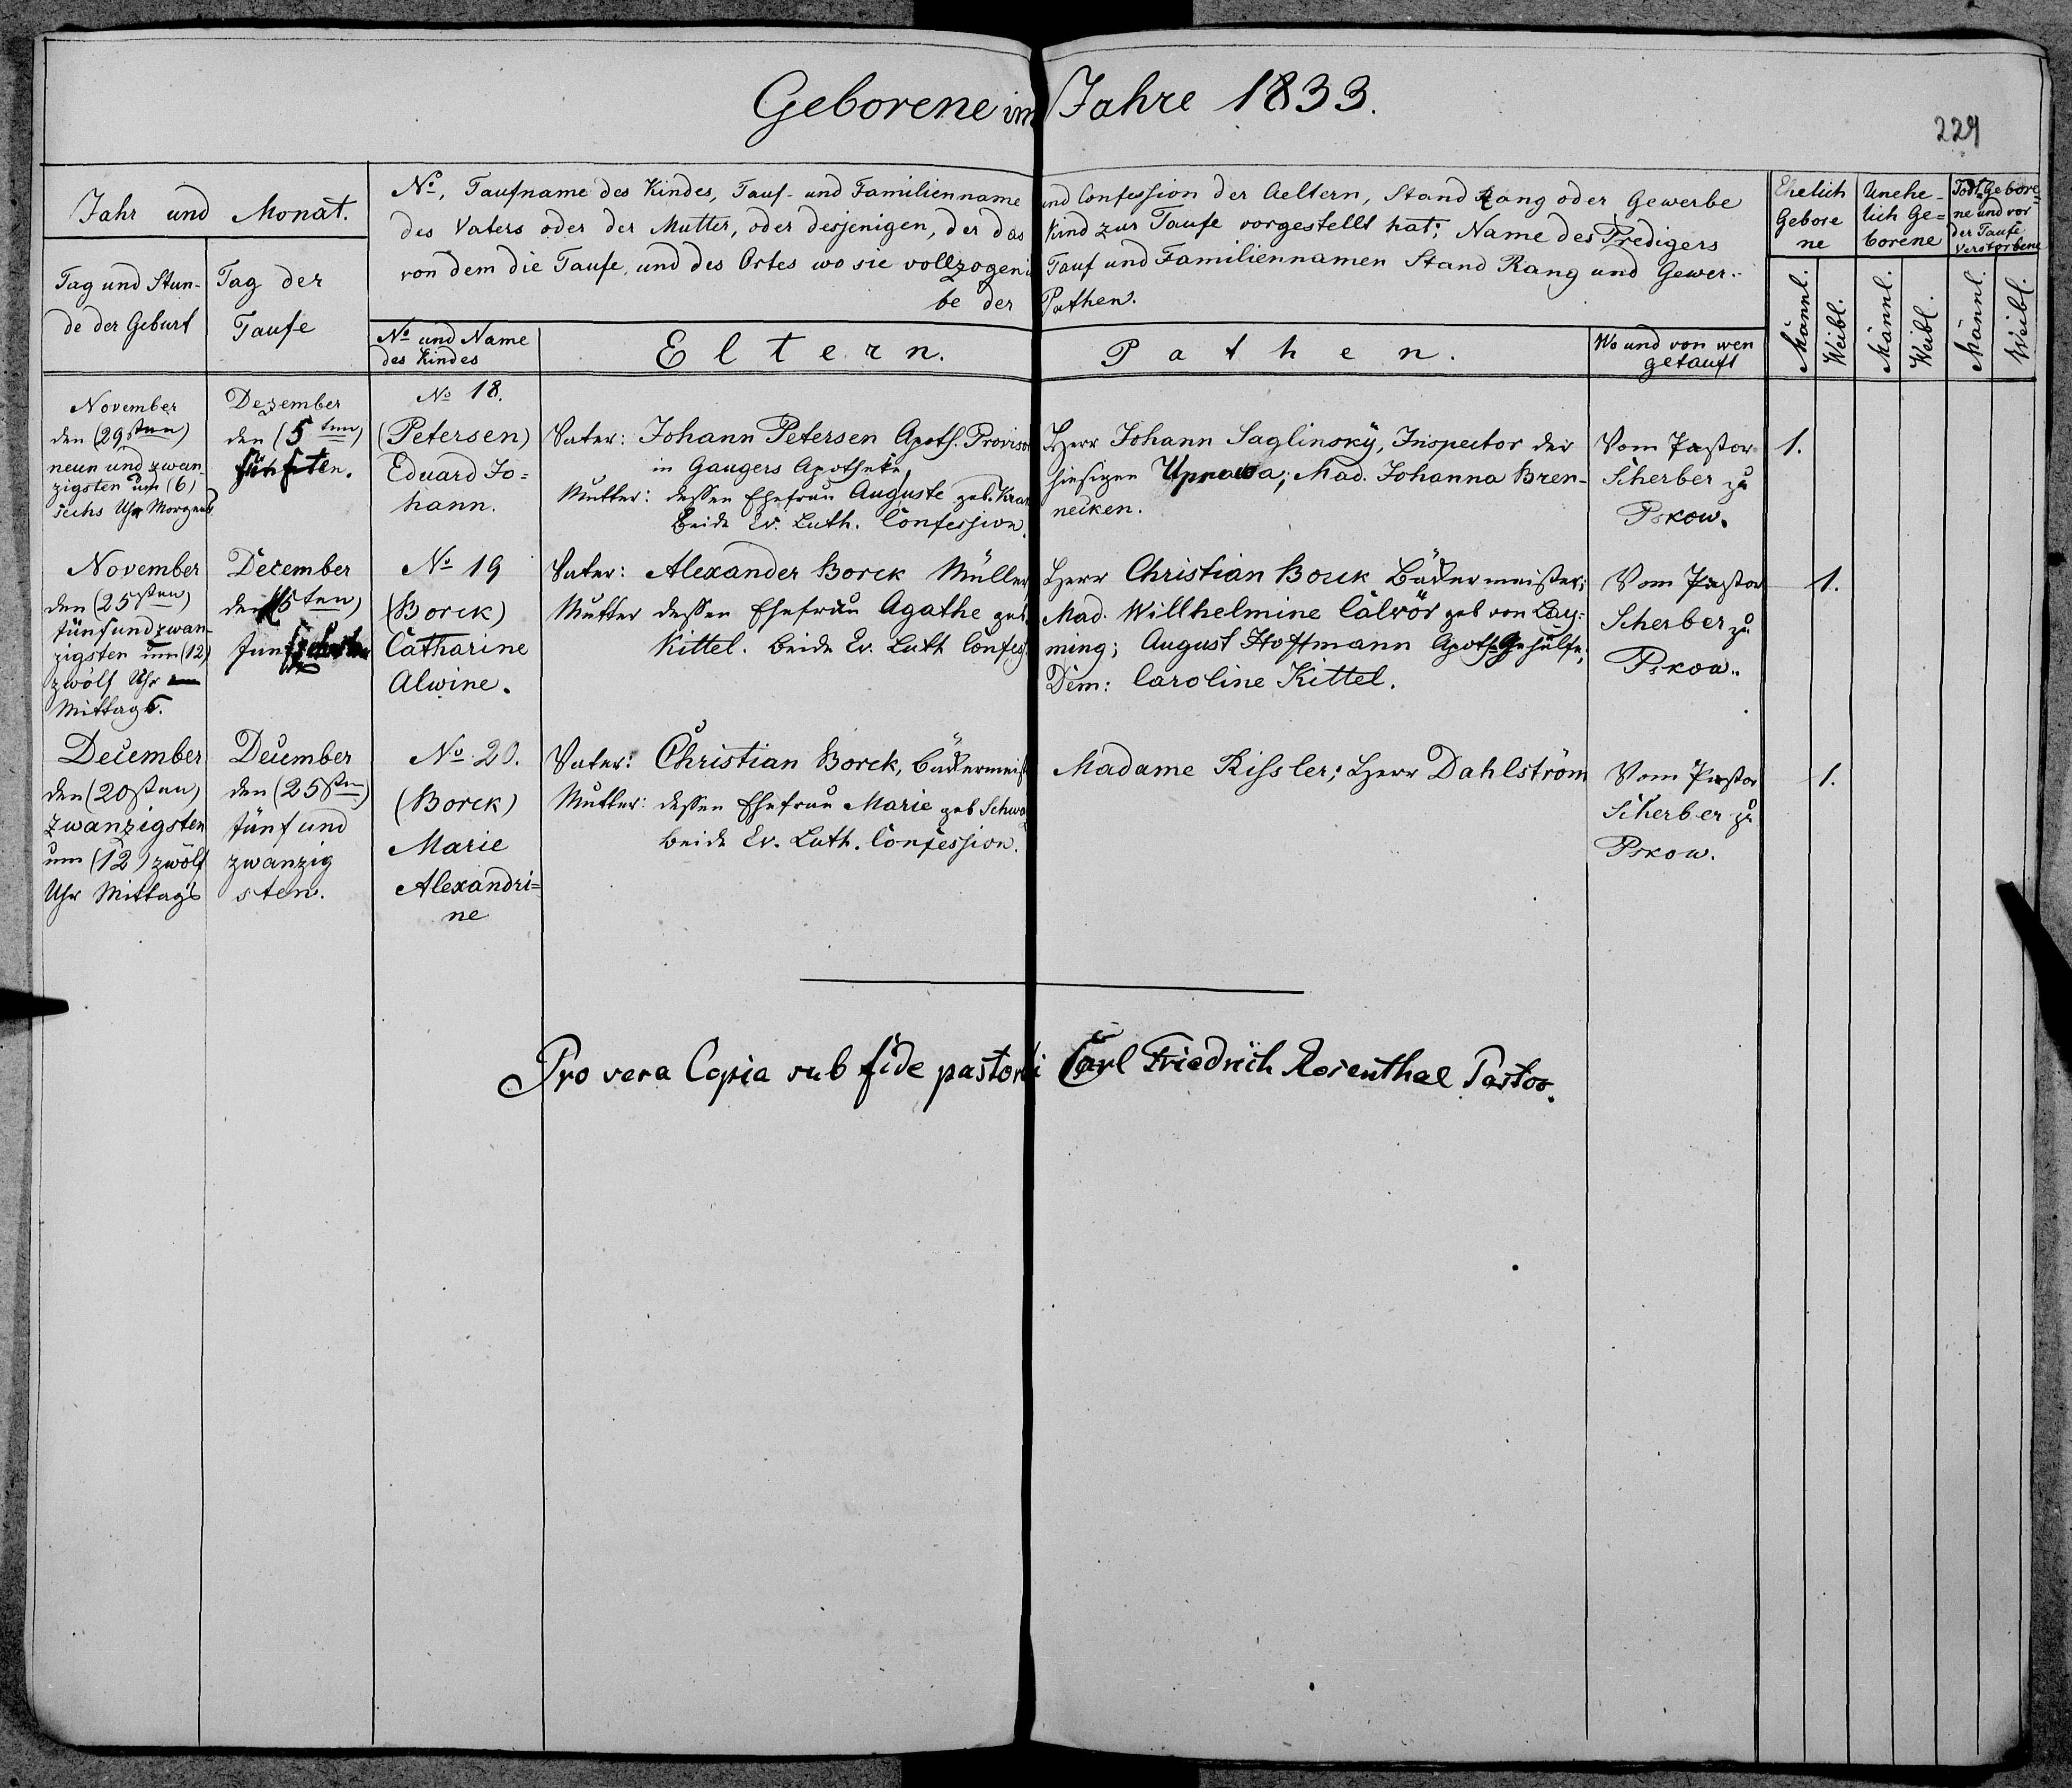 Geborene im Jahre 1833.
229
Jahr und Monat.
Tag und Stun-
de der Geburt
Tag der
Taufe
No, Taufname des Kindes, Tauf- und Familienname und Confession der Aeltern, Stand Rang oder Gewerbe
des Vaters oder der Mutter, oder desjenigen, der das Kind zur Taufe vorgestellt hat; Name des Predigers
von dem die Taufe, und des Ortes wo sie vollzogen Tauf und Familiennamen Stand Rang und Gewer-
be der Pathen.
No und Name
des Kindes
Eltern.
Pathen.
Wo und von wen
getauft
Ehelich
Gebore
ne
Unehe-
lich Ge=
borene
Todt Gebore=
ne und vor
der Taufe
Verstorbene
Männl.
Weibl.
Männl.
Weibl.
Männl.
Weibl.
November
den (29sten)
neun und zwan-
zigsten um (6)
sechs Uhr Morgens
Dezember
den (5ten)
fünften.
No 18.
(Petersen)
Eduard Jo=
hann.
Vater: Johann Petersen Apoth. Provisor
in Gaugers Apotheke,
Mutter: dessen Ehefrau Auguste geb.
Beide Ev. Luth. Confession.
Herr Johann Saglinsky, Inspector der
hiesigen Uprawa; Mad. Johanna Bren-
necken.
Vom Pastor
Scherber zu
Pskow.
1.
November
den (25sten)
fünfundzwan-
zigsten um (12)
zwölf Uhr
Mittags.
December
den 15ten)
No 19
(Borck)
Catharine
Alwine.
Vater: Alexander Borck Müller
Mutter dessen Ehefrau Agathe geb.
Kittel. Beide Ev. Luth Confess.
Herr Christian Borck Bäckermeister;
Mad. Willhelmine Calvör geb von Lay=
ming; August Hoffmann Apoth. Gehülfe;
Dem: Caroline Kittel.
Vom Pastor
Scherber zu
Pskow.
1.
December
den (20sten)
zwanzigsten
um (12) zwölf
Uhr Mittags
December
den (25sten)
fünf und
zwanzig
sten.
No 20.
(Borck)
Marie
Alexandri=
ne
Vater: Christian Borck, Bäckermeist
Mutter: dessen Ehefrau Marie geb
beide Ev. Luth. Confession.
Madame Kissler; Herr Dahlström
Vom Pastor
Scherber zu
Pskow.
1.
Pro vera Copia sub fide pastorali Carl Friedrich Rosenthal Pastor.